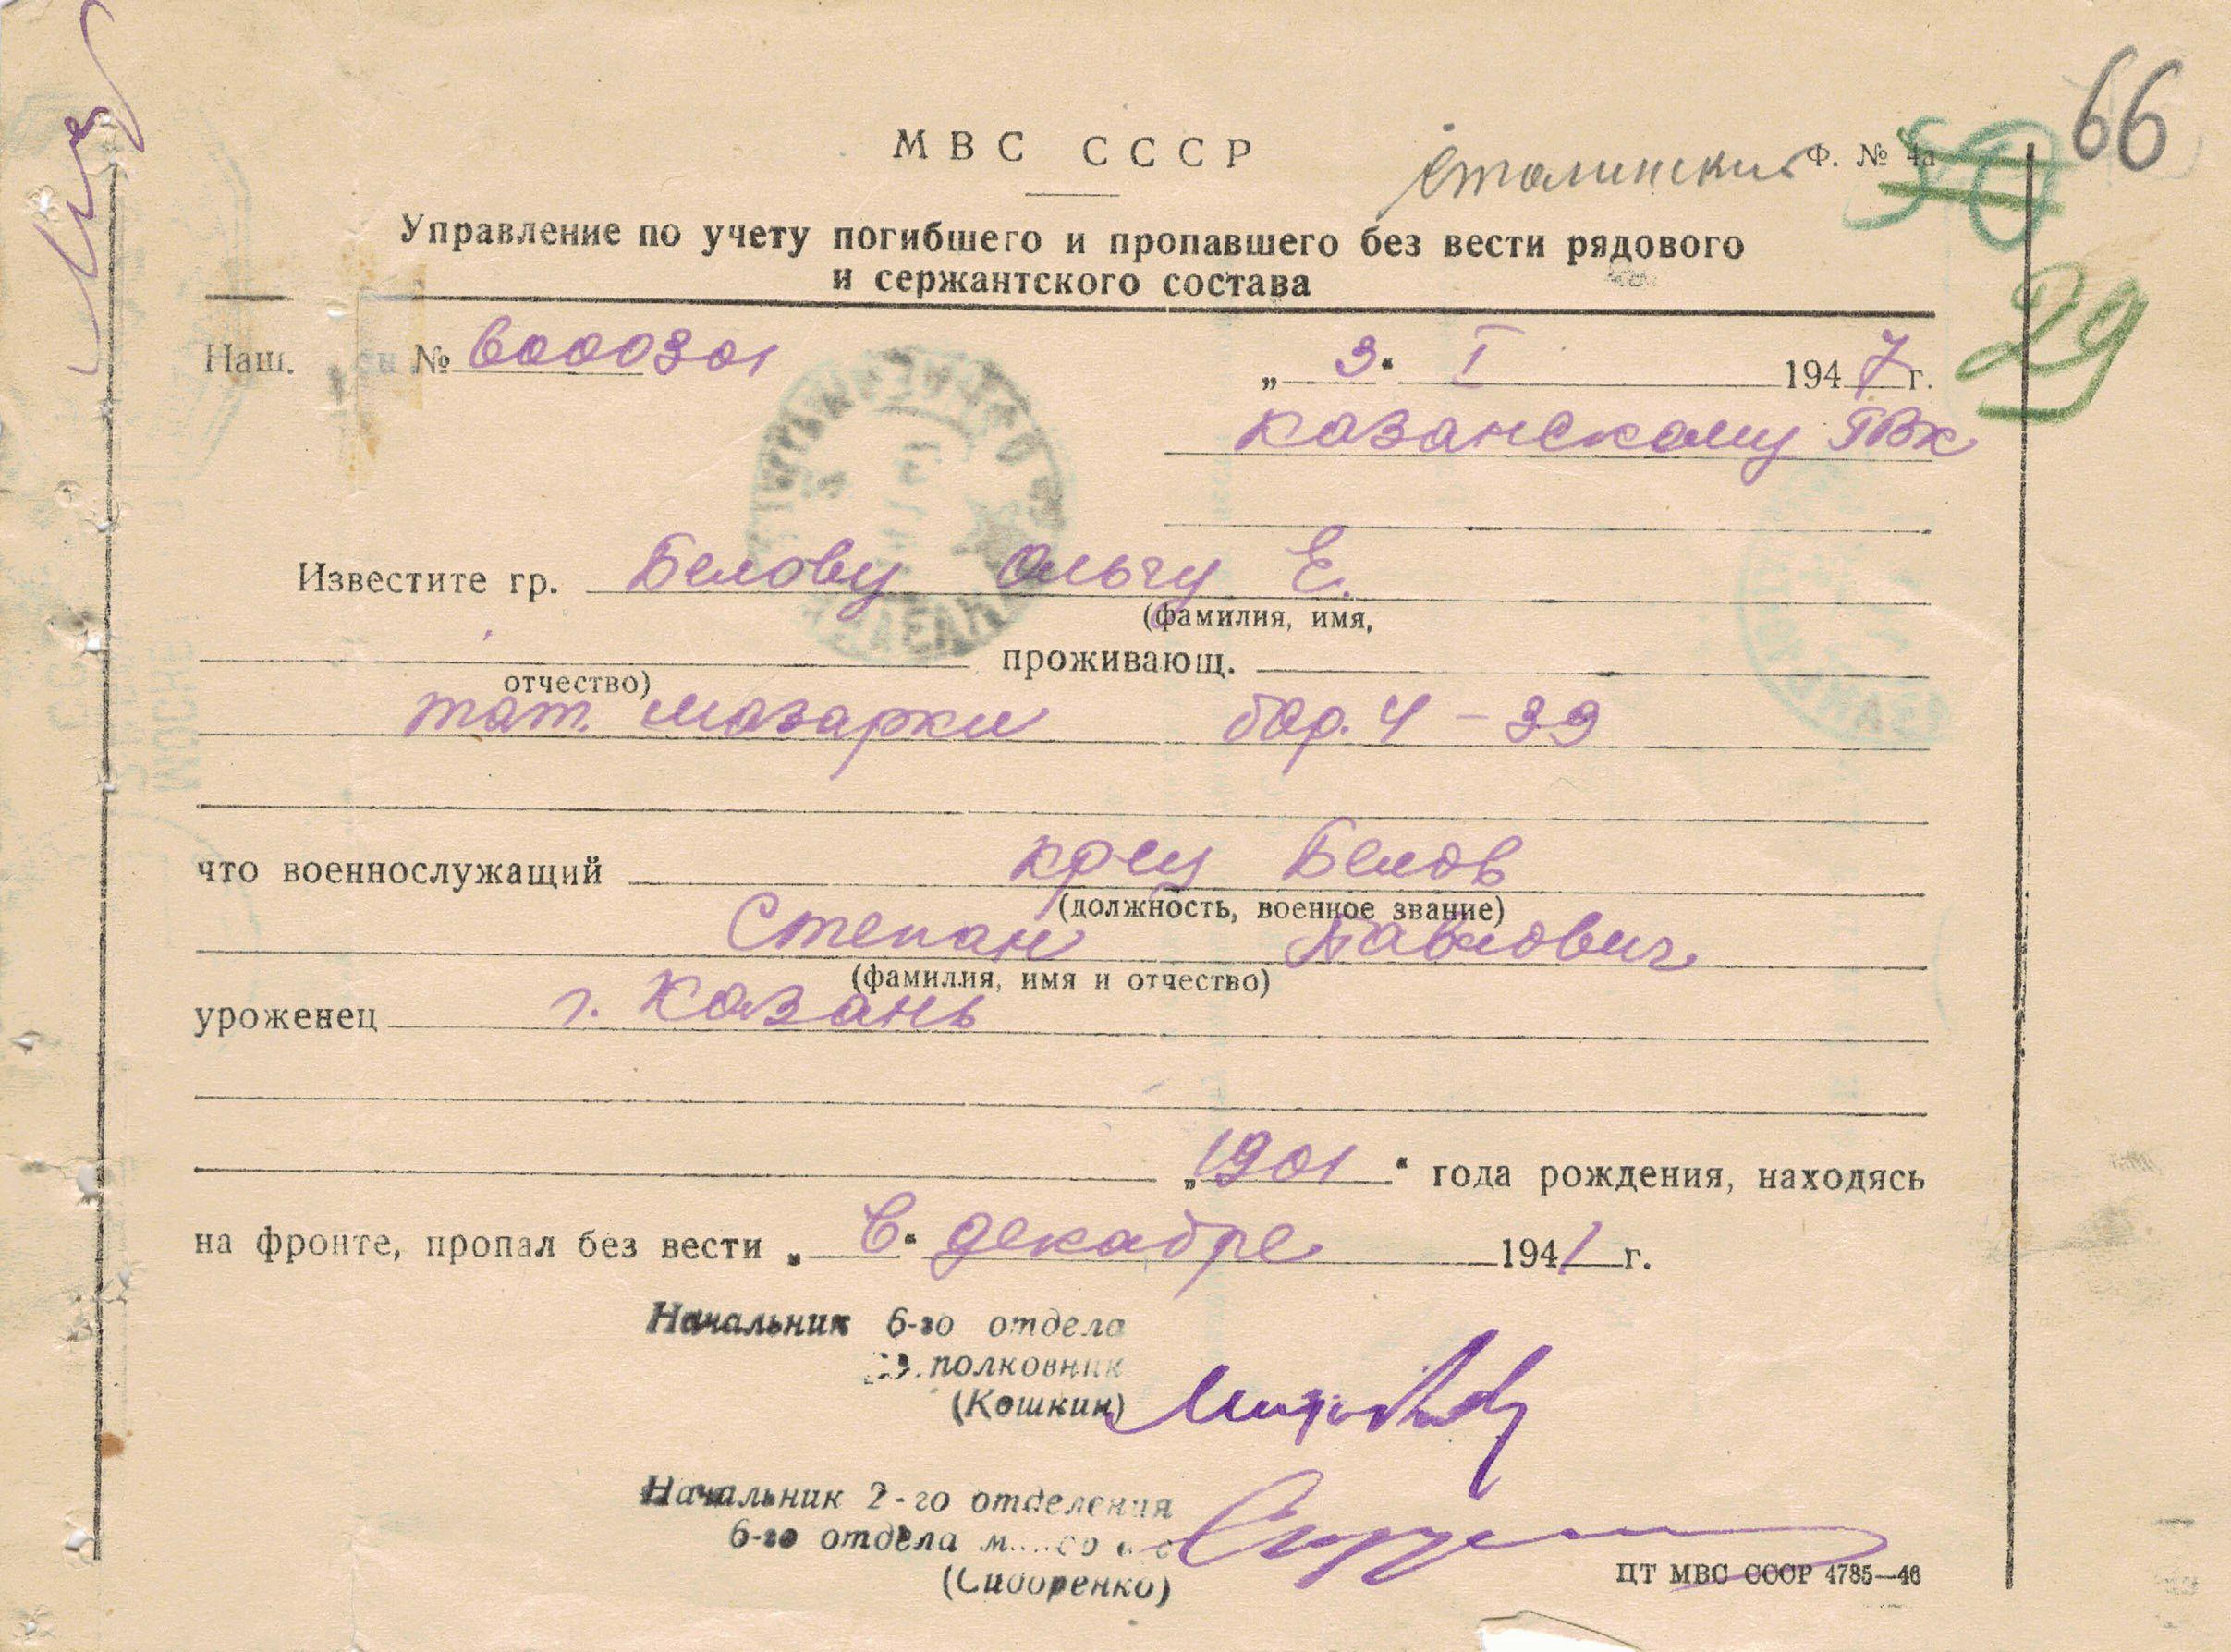 66
МВС СССР
Сталинский Ф. № 4а
50
Управление по учету погибшего и пропавшего без вести рядового
и сержантского состава
29
Наш. № 6000301 „3“ I 1947 г.
Казанскому ГВК
Известите гр. Белову Ольгу Е.
(фамилия, имя,
проживающ.
отчество)
тат. мазарки бар. 4 – 39
что военнослужащий кр-ец Белов
(должность, военное звание)
Степан Павлович
(фамилия, имя и отчество)
уроженец г. Казань
„1901“ года рождения, находясь
на фронте, пропал без вести „в“ декабре 1941 г.
Начальник 6-го отдела
полковник
(Кошкин)
Начальник 2-го отделения
6-го отдела
(Сидоренко)
ЦТ МВС СССР 4785—46